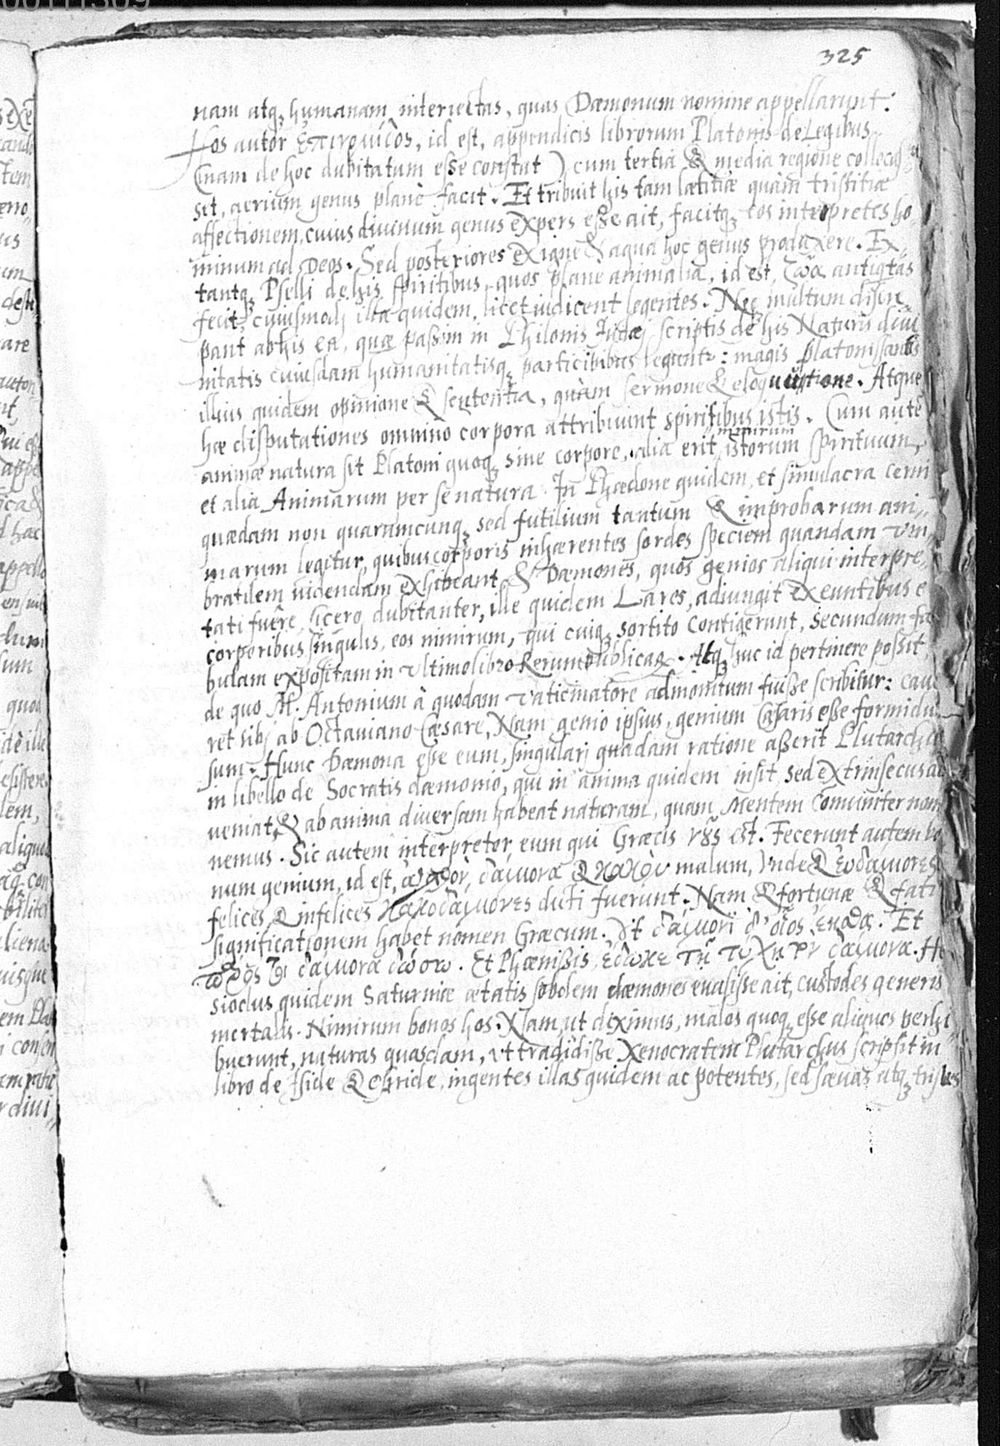 325
nam atq; humanam interiectas, quas Dæmonum nomine appellarunt.
Hos autor Επινομίδος, id est, appendicis librorum Platonis de Legibus
(nam de hoc dubitatum esse constat) cum tertia & media regione collocas
sit, aerium genus planè facit. Et tribuit his tam lætitiæ quàm tristitiæ
affectionem, cuius diuinum genus expers esse ait, facitq; eos interpretes ho
minum ad Deos. Sed posteriores ex igne & aqua hoc genus produxere. Ex
tantq; Pselli de his spiritibus, quos plane animalia, id est, ζῶα antiqtas
fecit, cuiusmodi illa quidem, licet iudicent legentes. Neq; multum discre
pant ab his ea, quæ passim in Philonis Judæi scriptis de his Naturis diui
nitatis cuiusdam humanitatisq; participibus leguntr: magis platonissantis
illius quidem opinione & sententia, quàm sermone & eloqutione. Atque
hæ disputationes omnino corpora attribuunt spiritibus istis. Cum autē
animæ natura sit Platoni quoq; sine corpore, alia erit nimirum istorum spirituum,
et alia Animarum per se natura. In Phædone quidem, et simulacra cerni
quædam non quarumcunq; sed futilium tantum & improbarum ani,
marum legitur, quibus corporis inhærentes sordes speciem quandam vm,
bratilem uidendam exhibeant. & Dæmones, quos genios aliqui interpre,
tati fuêre, Cicero dubitanter, ille quidem Lares, adiungit exeuntibus e
corporibus singulis, eos nimirum, qui cuiq; sortito contigerunt, secundum fa
bulam expositam in vltimo libro Rerumpublicaꝝ. Atq; huc id pertinere possit,
de quo M. Antonium à quodam vaticinatore admonitum fuisse scribitur: caue
ret sibi ab Octauiano Cæsare, Nam genio ipsius, genium Cæsaris esse formidu
sum. Hunc Dæmona esse eum, singulari quadam ratione asserit Plutarchus
in libello de Socratis dæmonio, qui in anima quidem insit sed extrinsecus ad
ueniat, & ab anima diuersam habeat naturam, quam Mentem Comuniter nomi
nemus. Sic autem interpretor eum qui Græcis νοῦς est. Fecerunt autem bo
num genium, id est, ἀγαθὸν δαίμονα & κακὸν malum, Vnde & ευδαίμονες
felices & infelices κακοδαίμονες dicti fuerunt. Nam & fortunæ & fati
significationem habet nomen Græcum. Vt δαίμονι δ' οἷος ἔησθα. Et
πρὸς τῷ δαίμονα δώσω. Et Phænissis, ἔδωκε τῇ τύχῃ τὸν δαίμονα. He
siodus quidem Saturniæ ætatis sobolem dæmones euasisse ait, custodes generis
mortalis. Nimirum bonos hos. Nam, ut diximus, malos quoq; esse aliquos perhi
buerunt, naturas quasdam, vt tradidisse Xenocratem Plutarchus scripsit in
libro de Iside & Osiride, ingentes illas quidem ac potentes, sed sæuas atq; tristes